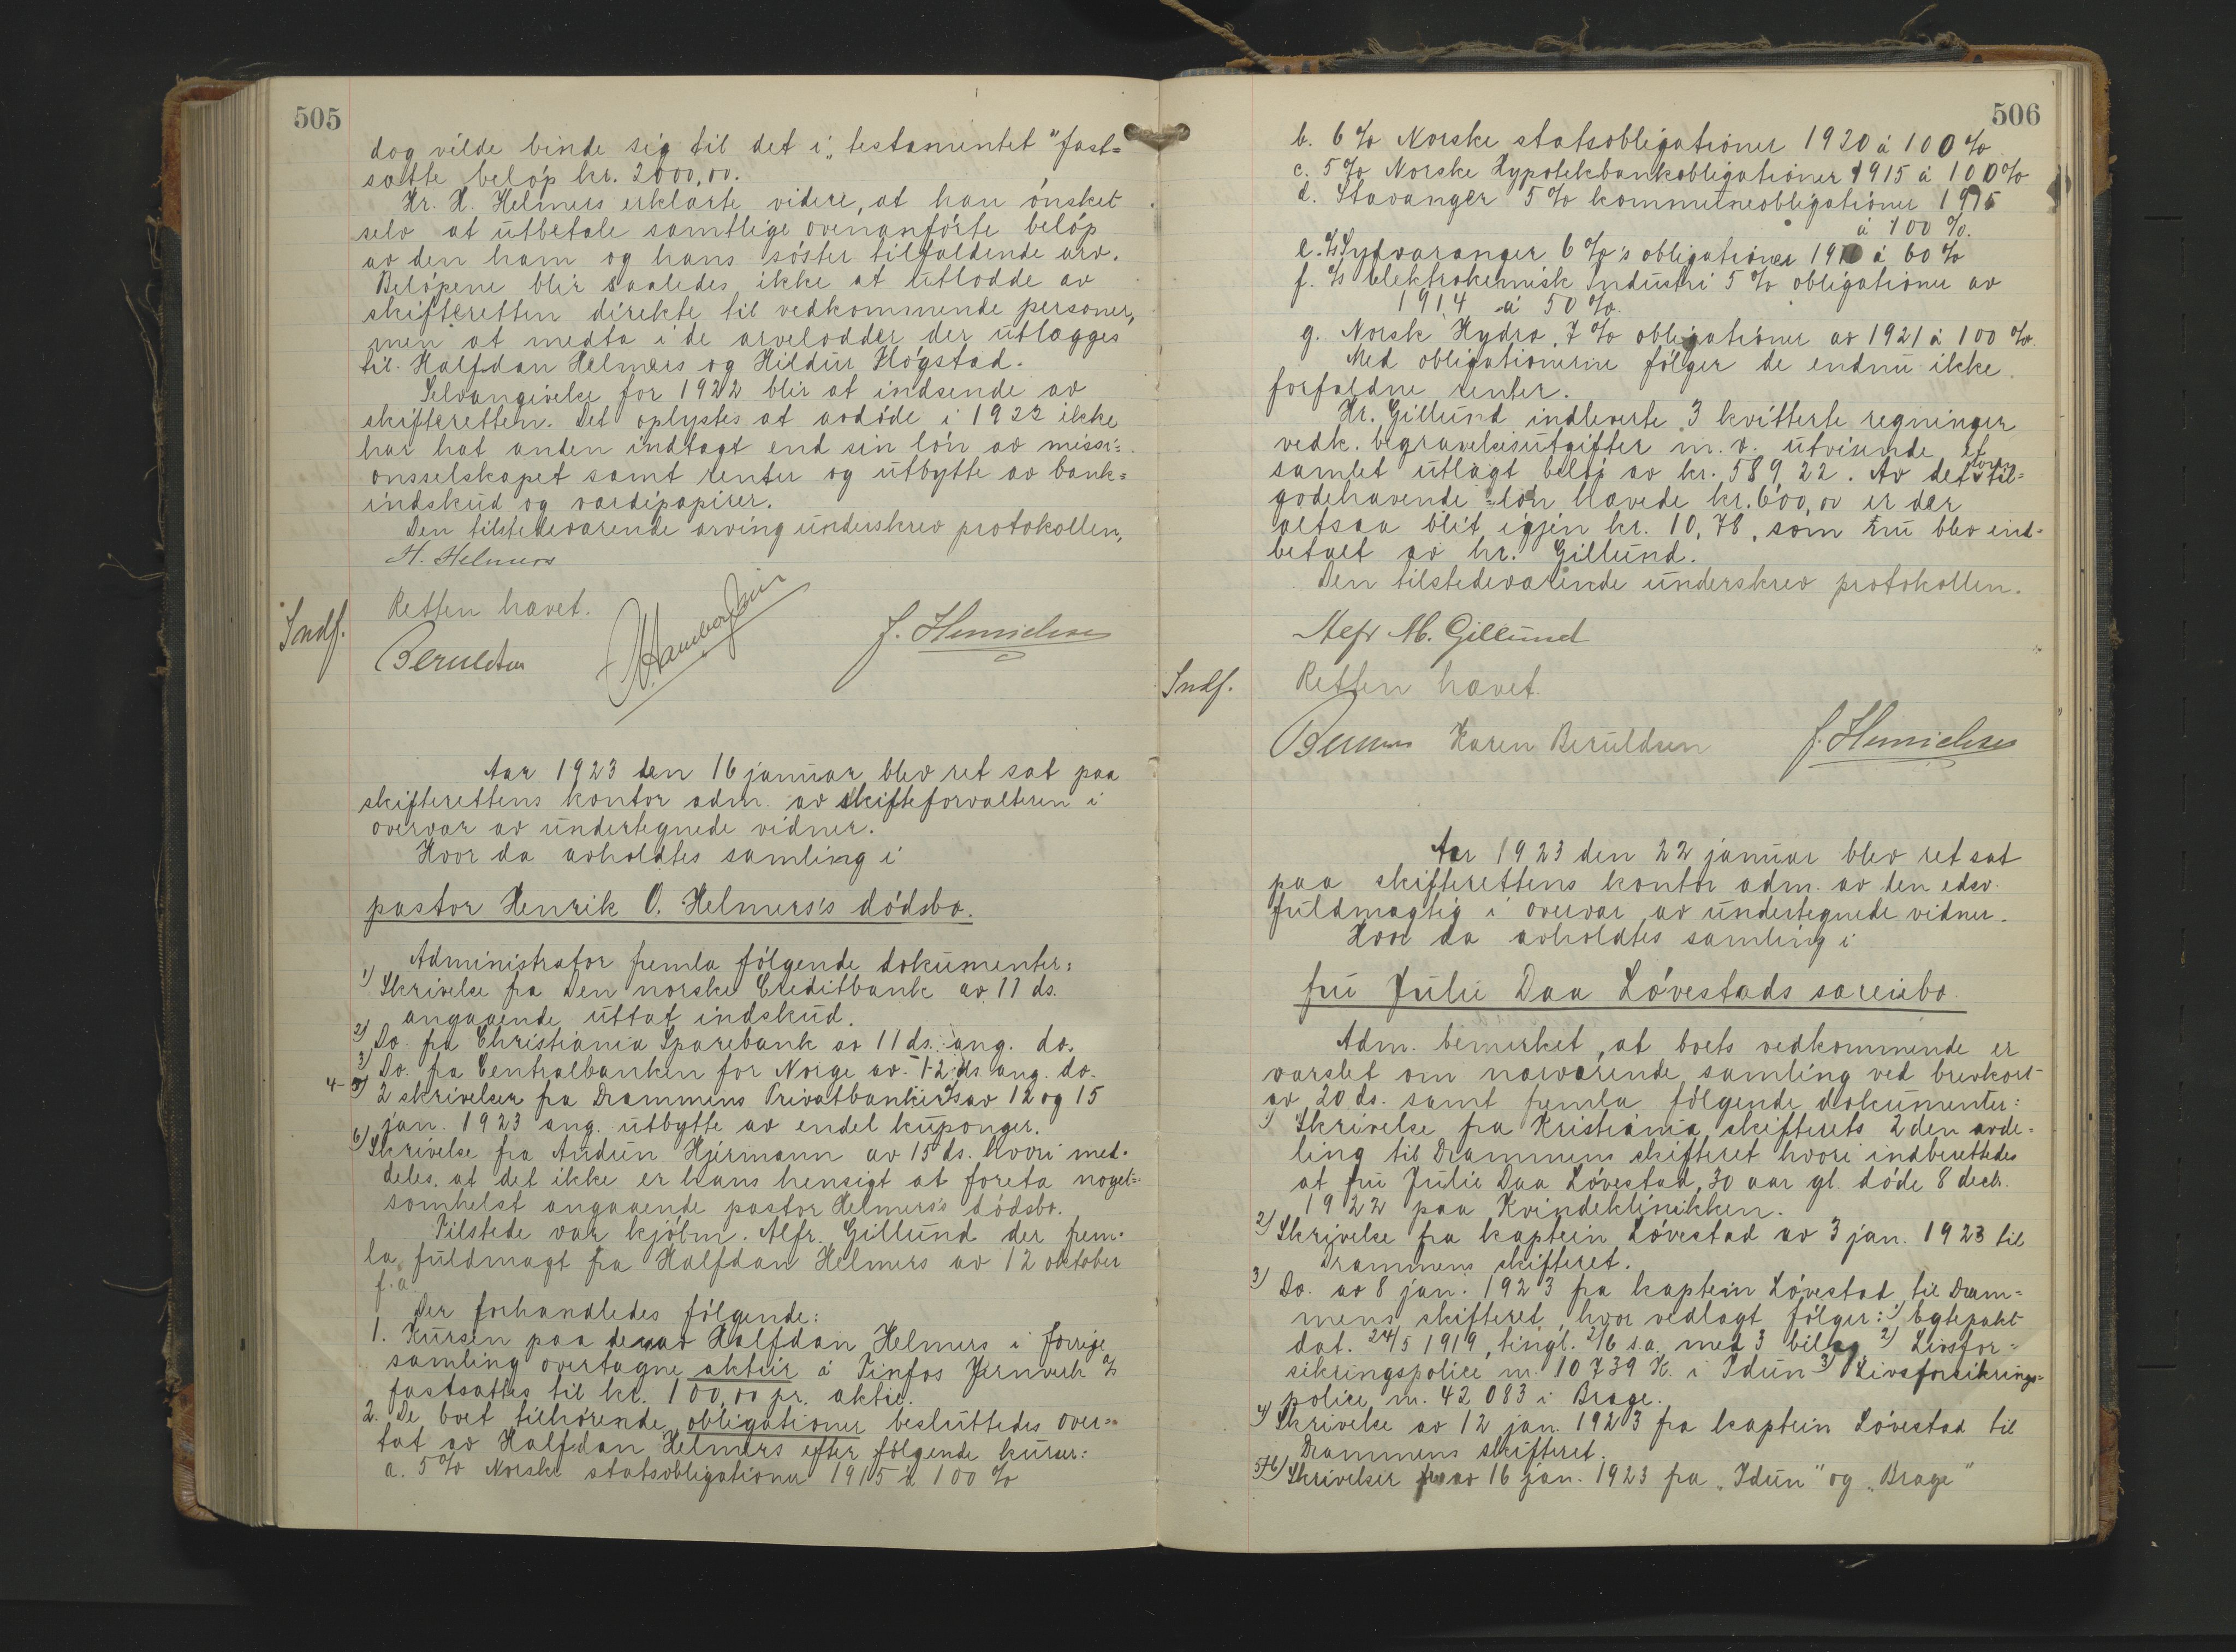 505
dog vilde binde sig til det i „testamentet" fast=
satte beløp kr. 2000,00.
Hr. H. Helmers erklærte videre, at han ønsket
selv at utbetale samtlige ovenanførte beløp
av den ham og hans søster tilfaldende arv.
Beløpene blir saaledes ikke at utlodde av
skifteretten direkte til vedkommende personer,
men at medta i de arvelodder der utlægges
til Halfdan Helmers og Hildur Høgstad.
Selvangivelse for 1922 blir at indsende av
skifteretten. Det oplystes at avdøde i 1922 ikke
har hat anden indtægt end sin løn av missi=
onsselskapet samt renter og utbytte av bank=
indskud og værdipapirer.
Den tilstedeværende arving underskrev protokollen.
H. Helmers
Retten hævet.
Indf.
J. Henrichsen
Aar 1923 den 16 januar blev ret sat paa
skifterettens kontor adm. av skifteforvalteren i
overvær av undertegnede vidner.
Hvor da avholdtes samling i
pastor Henrik O. Helmers's dødsbo.
Administrator fremla følgende dokumenter:
1) Skrivelse fra Den norske Creditbank av 11 ds.
angaaende uttat indskud.
2) Do. fra Christiania Sparebank av 11 ds. ang. do.
3) Do. fra Centralbanken for Norge av 12 ds ang. do.
4-5) 2 skrivelser fra Drammens Privatbank A/s av 12 og 15
jan. 1923 ang. utbytte av endel kuponger.
6) Skrivelse fra Audun Hjermann av 15 ds. hvori med=
deles, at det ikke er hans hensigt at foreta noget=
somhelst angaaende pastor Helmers's dødsbo.
Tilstede var kjøbm. Alfr. Gillund der frem=
la fuldmagt fra Halfdan Helmers av 12 oktober
f.a.
Der forhandledes følgende:
1. Kursen paa de av Halfdan Helmers i forrige
samling overtagne aktier à Tinfos Jernverk A/s
fastsattes til kr. 100,00 pr. aktie.
2. De boet tilhørende obligationer besluttedes over=
tat av Halfdan Helmers efter følgende kurser:
a. 5% Norske statsobligationer 1915 à 100 %
506
b. 6% Norske statsobligationer 1920 à 100 %
c. 5% Norske Hypotekbankobligationer 1915 à 100%
d. Stavanger 5% kommuneobligationer 1915
à 100 %.
e. A/s Sydvaranger 6%'s obligationer 1910 à 60 %
f. A/s Elektrokemisk Industri 5% obligationer av
1914 à 50 %.
g. Norsk Hydro, 7% obligationer av 1921 à 100 %.
Med obligationerne følger de endnu ikke
forfaldne renter.
Hr. Gillund indleverte 3 kvitterte regninger
vedk. begravelsesutgifter m. v. utvisende et
samlet utlagt beløp av kr. 589,22. Av det til=
godehavende løn hævede kr. 600,00 er der
altsaa blit igjen kr. 10,78, som nu blev ind=
betalt av hr. Gillund.
Den tilstedeværende underskrev protokollen.
Alfr M. Gillund
Indf.
Retten hævet.
Karen Beruldsen J. Henrichsen
Aar 1923 den 22 januar blev ret sat
paa skifterettens kontor adm. av den edsv.
fuldmægtig i overvær av undertegnede vidner.
Hvor da avholdtes samling i
fru Julie Daa Løvestads særeiebo.
Adm. bemerket, at boets vedkommende er
varslet om nærværende samling ved brevkort
av 20 ds. samt fremla følgende dokumenter:
1) Skrivelse fra Kristiania skifterets 2den avde=
ling til Drammens skifteret hvori indberettedes
at fru Julie Daa Løvestad, 30 aar gl. døde 8 decb.
1922 paa Kvindeklinikken.
2) Skrivelse fra kaptein Løvestad av 3 jan. 1923 til
Drammens skifteret.
3) Do. av 8 jan. 1923 fra kaptein Løvestad til Dram=
mens skifteret, hvor vedlagt følger: 1) Egtepakt
dat. 24/5 1919, tingl. 2/6 s.a. med 3 bilag 2) Livsfor=
sikringspolice nr. 10739 K. i Idun 3) Livsforsikrings=
police nr. 42083 i Brage.
4) Skrivelse av 12 jan. 1923 fra kaptein Løvestad til
Drammens skifteret.
5+6) Skrivelser av 16 jan. 1923 fra „Idun" og „Brage"